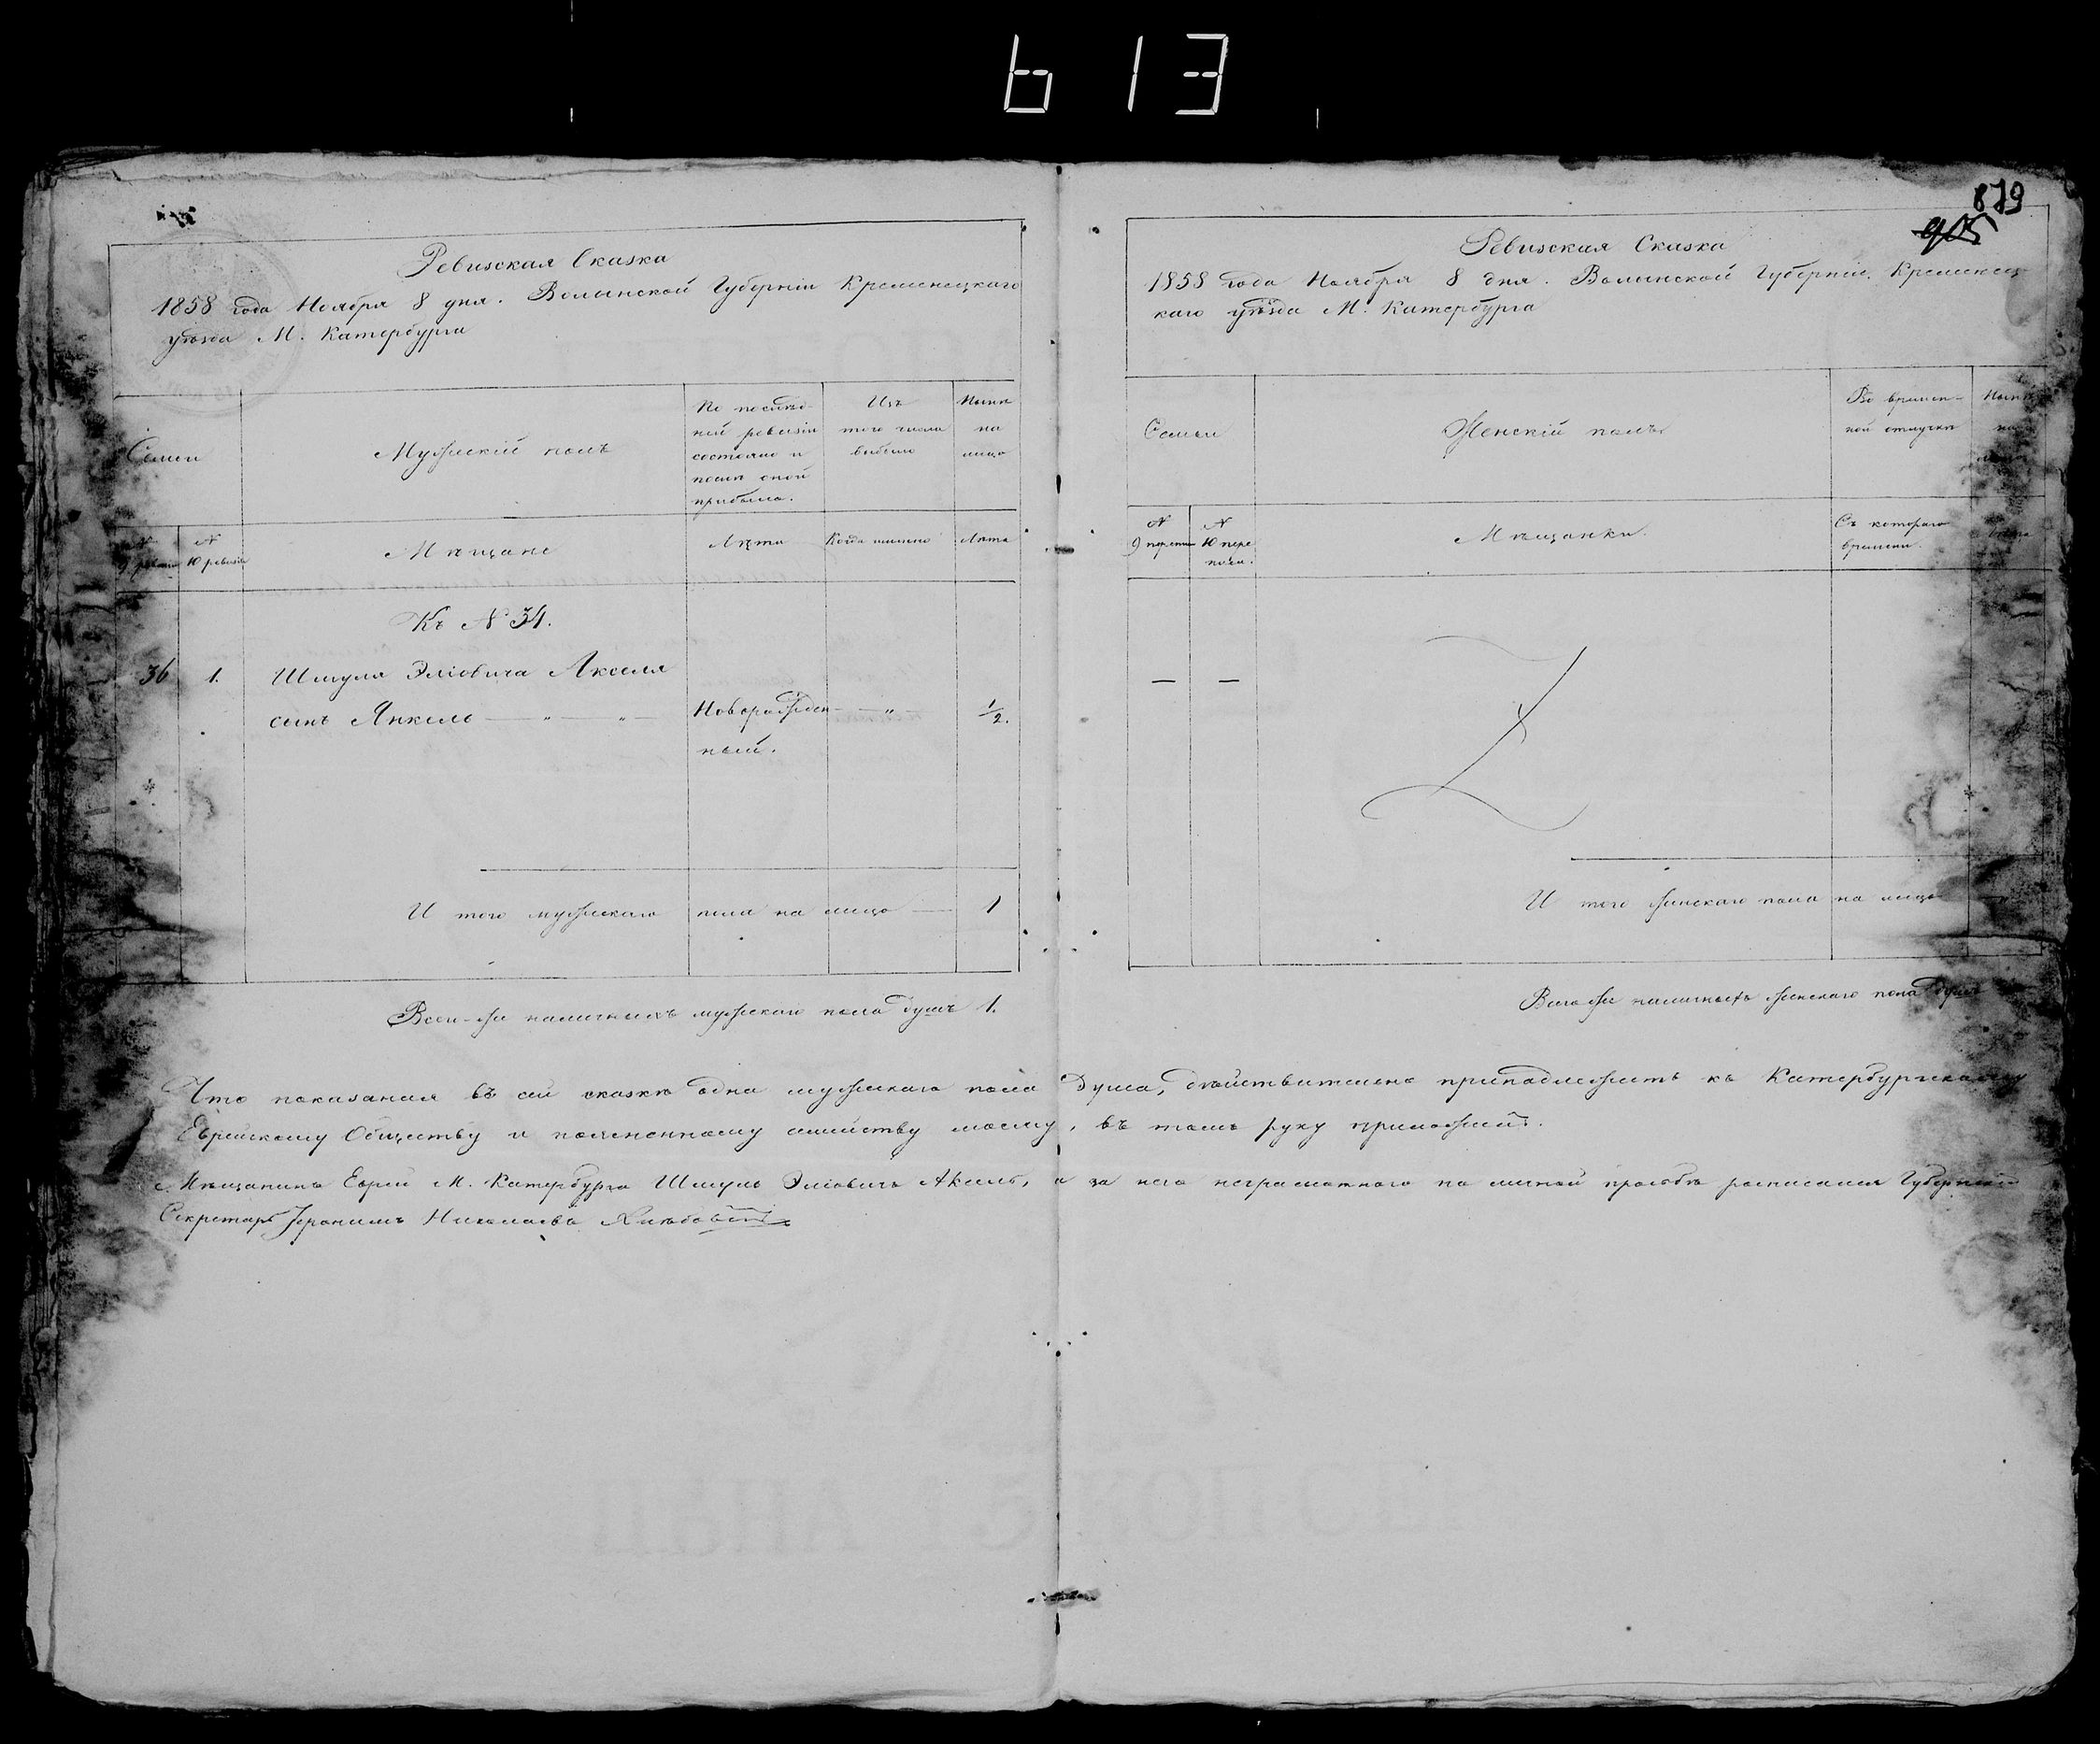 613
879
905
Ревизская Сказка
1858 года Ноября 8 дня. Волынской Губерніи Кременецкаго
уѣзда М. Катербурга
Семьи
Мужскій полъ
По послѣд-
ней ревизіи
состояло и
послѣ оной
прибыло.
Изъ
того числа
выбыло
Нынѣ
на
лицо
N
9 ревизіи
N
10 ревизіи
Мѣщане
Лѣта
Когда именно
Лѣта
Къ N 34.
36 1. Шмуля Эліовича Акселя
сынъ Янкель — „ — „ — Новорожден — „ — 1/2.
ный.
И того мужскаго пола на лицо — 1
Всего-же наличныхъ мужскаго пола душъ 1.
Ревизская Сказка
1858 года Ноября 8 дня. Волынской Губерніи. Кременец-
каго уѣзда М. Катербурга
Семьи
Женскій полъ
Во времен-
ной отлучкѣ
Нынѣ
на
N
9 переписи
N
10 пере
писи.
Мѣщанки.
Съ котораго
времени.
Лѣта
— —
И того женскаго пола на лицо
Всего же наличныхъ женскаго пола душъ
Что показанная въ сей сказкѣ одна мужскаго пола душа, дѣйствительно принадлежитъ къ Катербургскому
Еврейскому Обществу и поясненному семейству моему, въ томъ руку приложилъ.
Мѣщанинъ Еврей М. Катербурга Шмуль Эліовичъ Аксель, а за него неграмотнаго по личной просьбѣ росписался Губернскій
Секретарь Іеронимъ Николаевъ